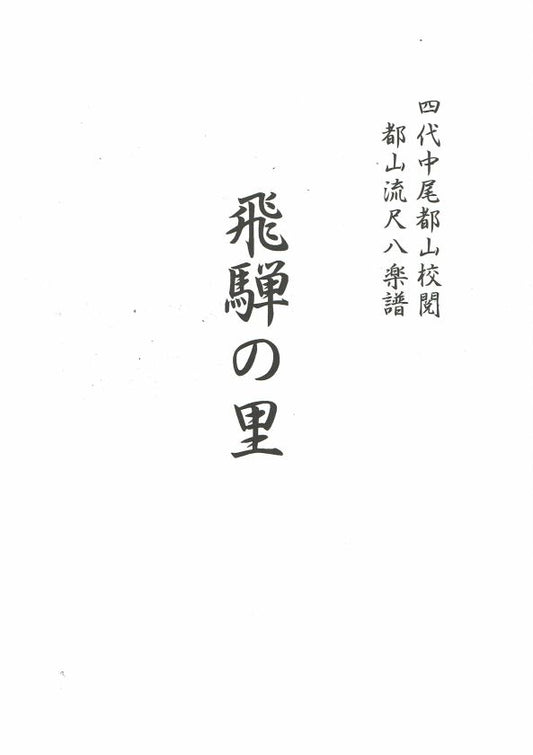 四代中尾都山校閲
都山流尺八楽譜
飛騨の里